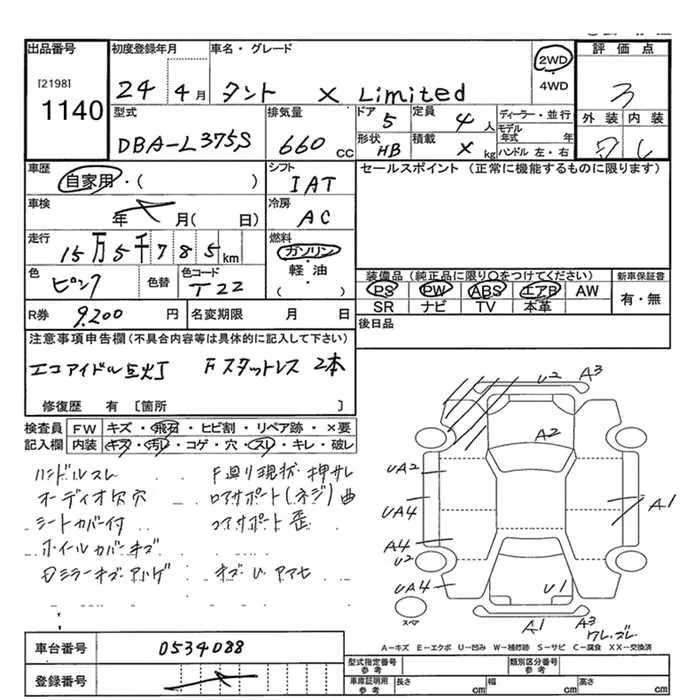 出品番号 初度登録年月 車名・グレード 評価点
[2198] 1140 24 4月 タント X Limited 2WD 4WD 3
型式 排気量 ドア 5 定員 4人 ディーラー・並行 外装 内装
DBA-L375S 660cc 形状 HB 積載 X kg モデル年式 年 ハンドル 左・右
車歴 自家用・( ) シフト IAT セールスポイント (正常に機能するものに限ります)
車検 年 月( 日) 冷房 AC
走行 15万5千785km 燃料 ガソリン 軽油 ( )
色 ピンク 色替 色コード T22 装備品(純正品に限り○をつけてください) 新車保証書
PS PW ABS エアB AW 有・無
SR ナビ TV 本革
R券 9,200円 名変期限 月 日 後日品
注意事項申告欄(不具合内容等は具体的に記入して下さい)
エコアイドル 灯 Fスタットレス 2本
修復歴 有 [箇所 ]
検査員 FW キズ・飛石・ヒビ割・リペア跡・×要
記入欄 内装 キズ・汚レ・コゲ・穴・スレ・キレ・破レ
ハンドルスレ F廻り現状 押サレ
オーディオ欠 穴 ロアサポート(ネジ)曲
シートカバー付 コアサポート歪
ホイルカバーキズ
ミラーキズ
U2 A3
A2
UA2
UA4 A1
A4
U2
UA4 U1
スペア A1 A3
ワレ.ズレ
A−キズ E−エクボ U−凹み W−補修跡 S−サビ C−腐食 XX−交換済
車台番号 0534088
登録番号
型式指定番号 類別区分番号
車庫証明用参考 長さ cm 幅 cm 高さ cm